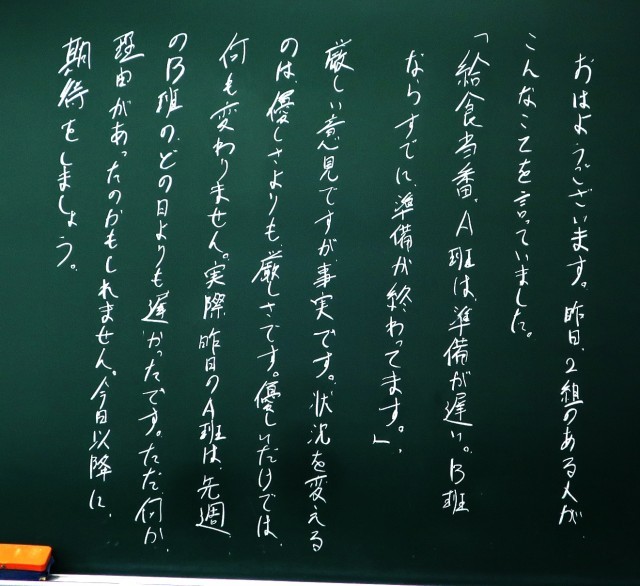 おはようございます。昨日、2組のある人が、
こんなことを言っていました。
「給食当番、A班は、準備が遅い。B班
ならすでに、準備が終わってます。」
厳しい意見ですが、事実です。状況を変える
のは、優しさよりも、厳しさです。優しいだけでは、
何も変わりません。実際、昨日のA班は、先週
のB班の、どの日よりも遅かったです。ただ、何か、
理由があったのかもしれません。今日以降に、
期待をしましょう。